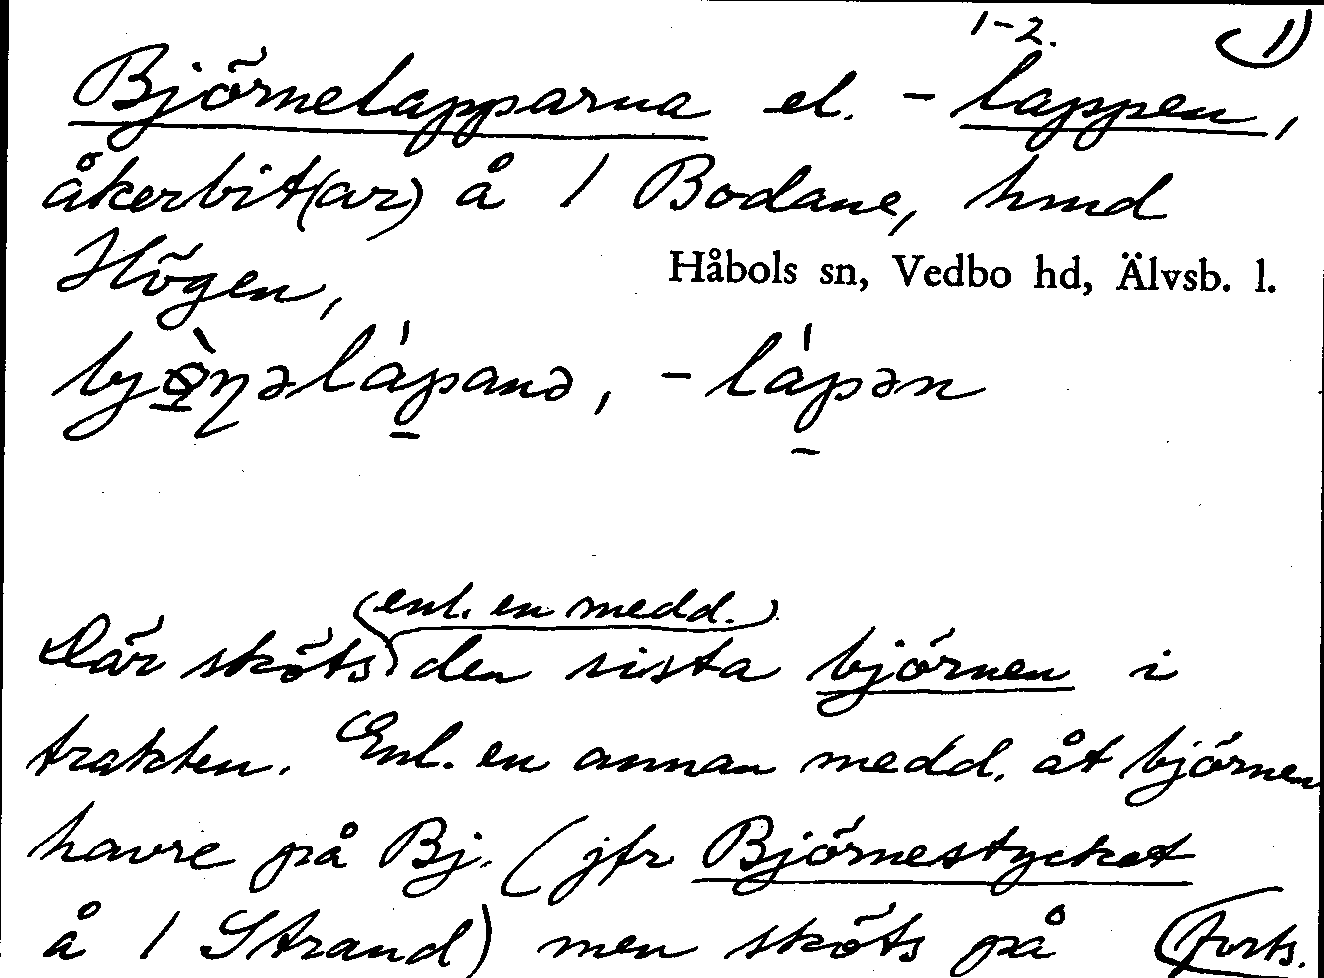 1-2. 1)
Björnelapparna el. -lappen,
åkerbit(ar) å 1 Bodane, hmd
Högen,
Håbols sn, Vedbo hd, Älvsb. l.
Där sköts (enl. en medd.) den sista björnen i
trakten. Enl. en annan medd. åt björnen
havre på Bj. (jfr Björnestycket
å 1 Strand) men sköts på (forts.